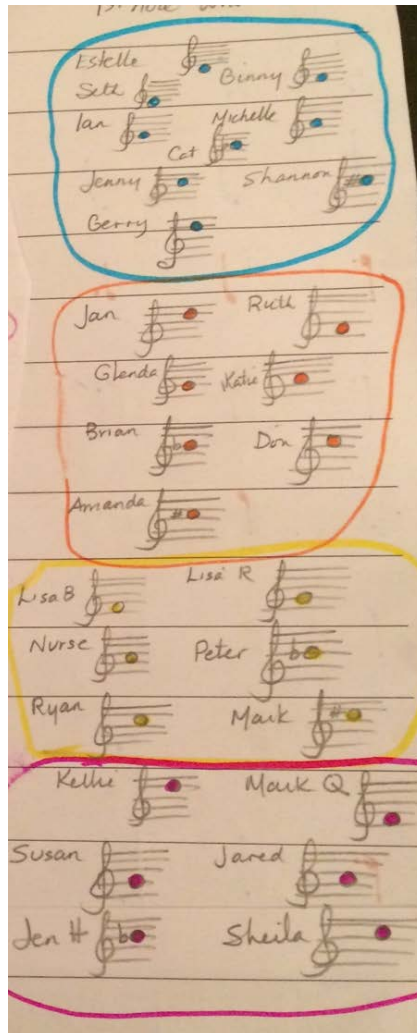 Estelle
Seth Binny
Ian Michelle
Cat
Jenny Shannon
Gerry
Jan Ruth
Glenda Katie
Brian Don
Amanda
Lisa B Lisa R
Nurse Peter
Ryan Mark
Kellie Mark Q
Susan Jared
Jen H Sheila